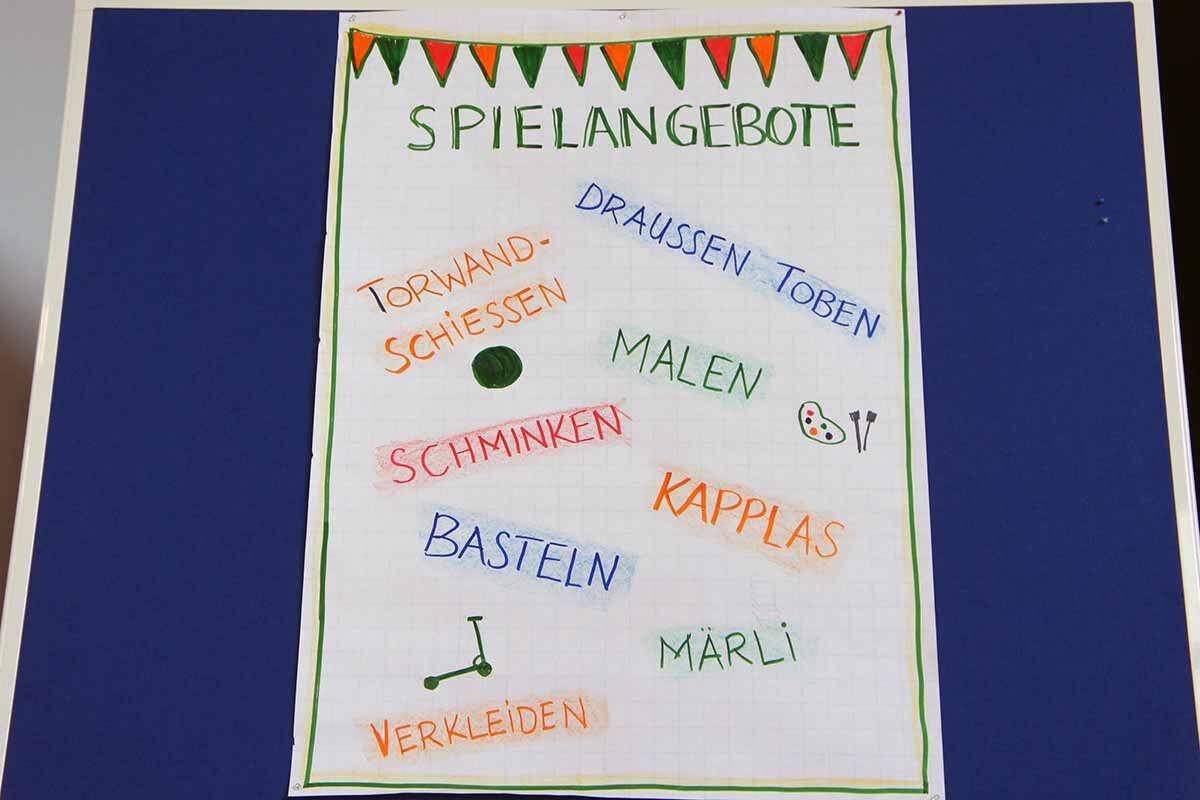 SPIELANGEBOTE
DRAUSSEN TOBEN
TORWAND-
SCHIESSEN
MALEN
SCHMINKEN
KAPPLAS
BASTELN
MÄRLI
VERKLEIDEN